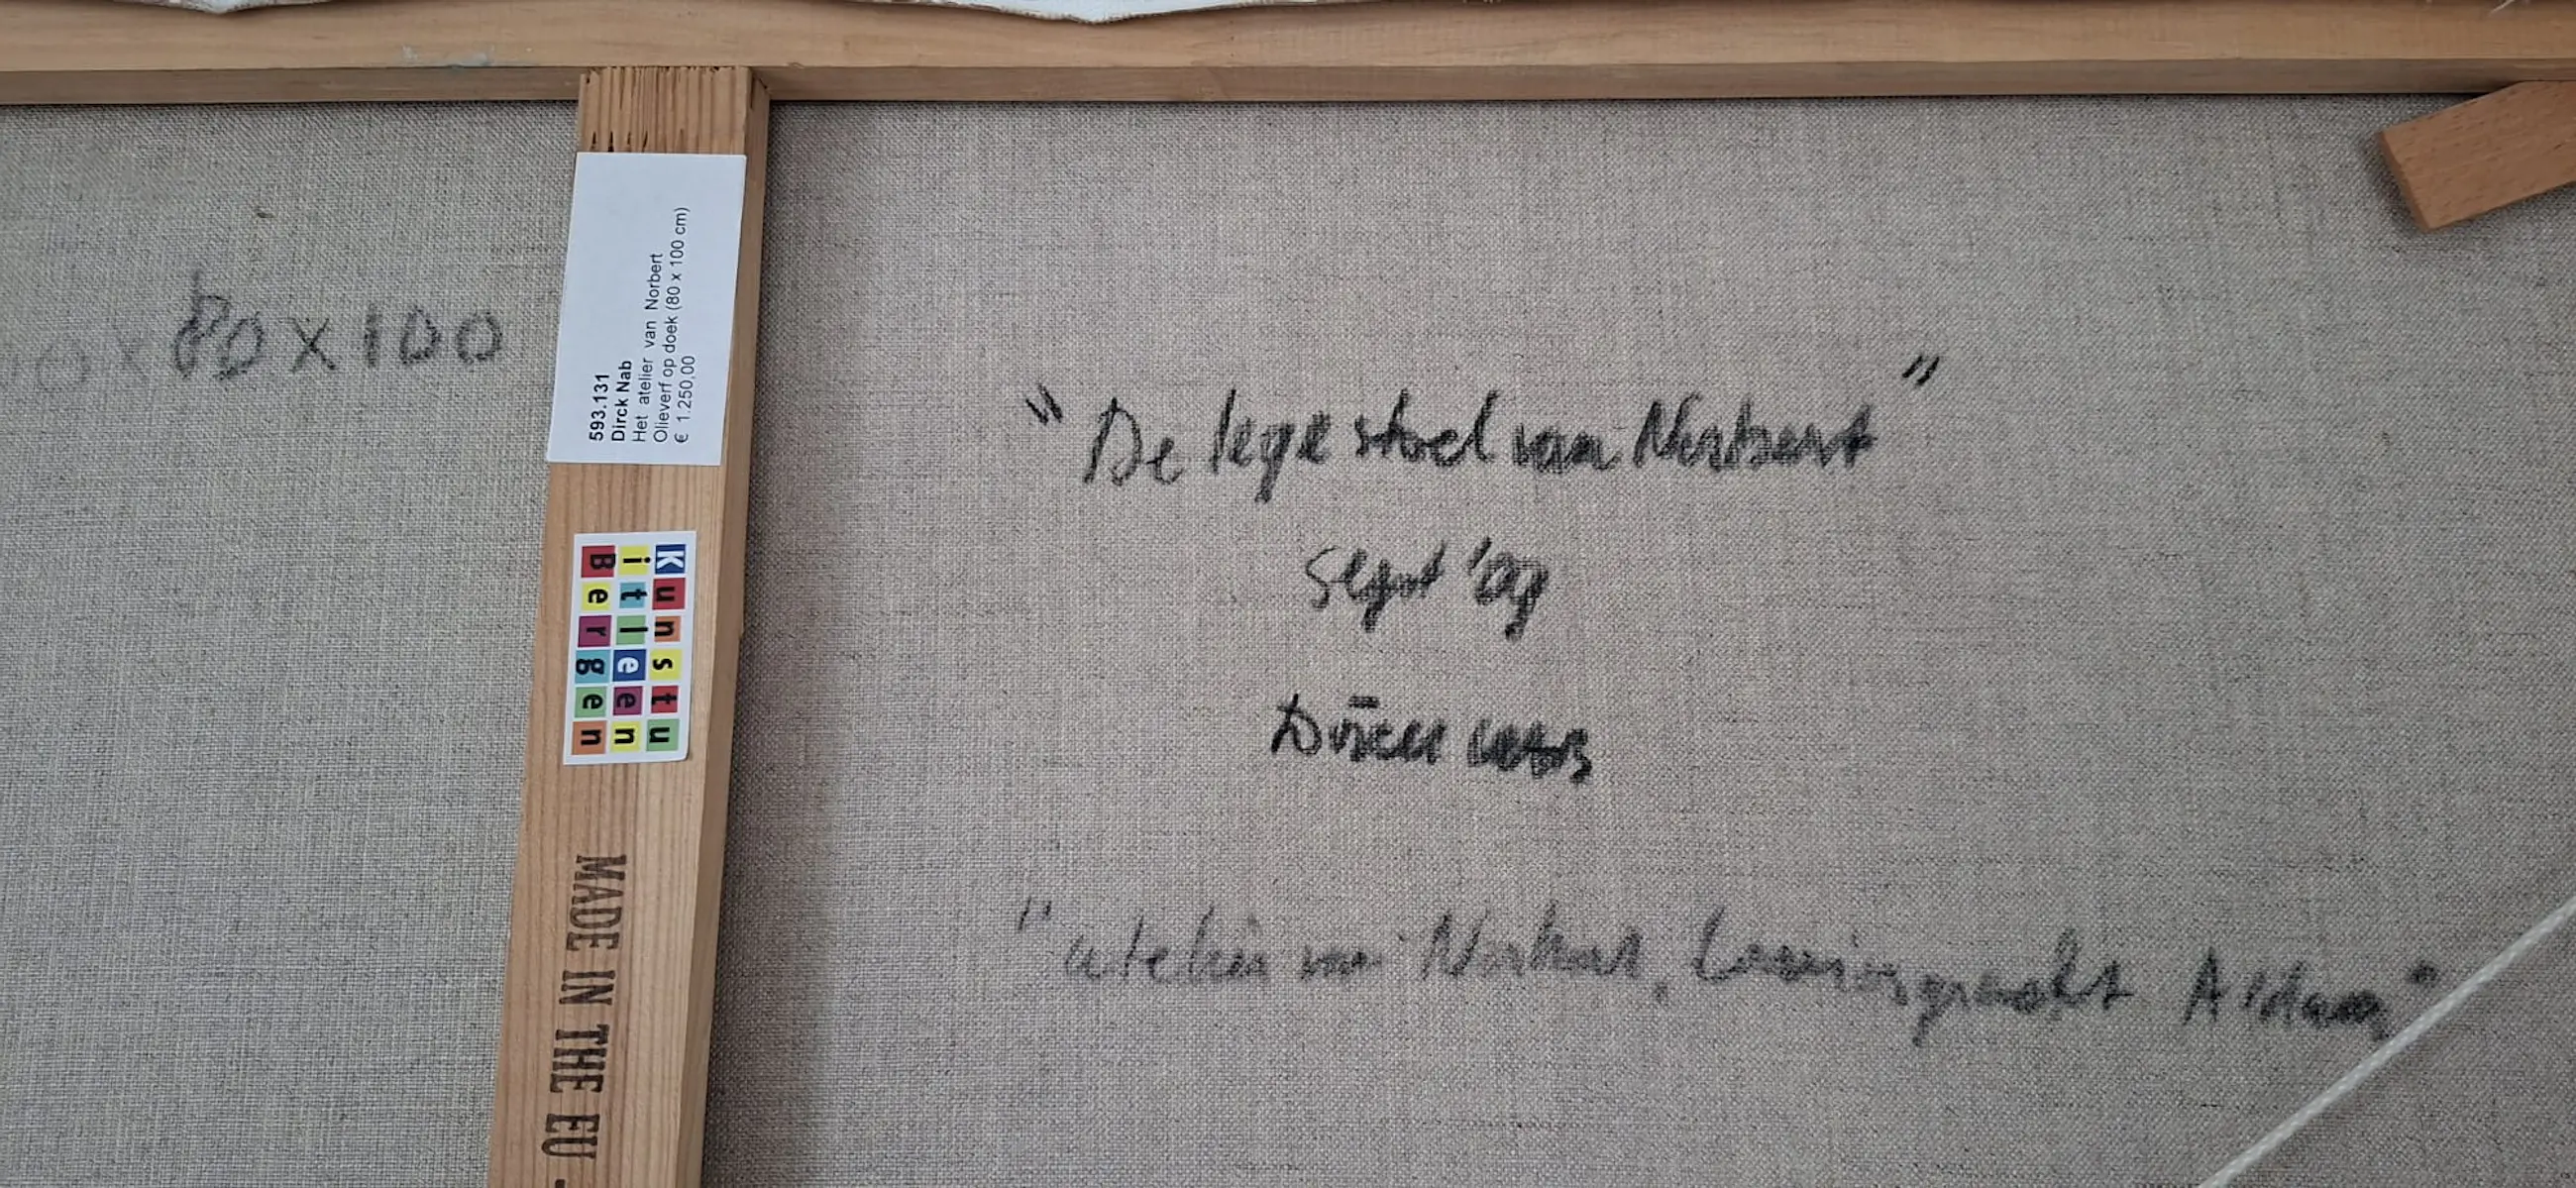 80 x 100
593.131
Dirck Nab
Het atelier van Norbert
Olieverf op doek (80 x 100 cm)
€ 1.250,00
Kunstu
itleen
Bergen
MADE IN THE EU
"De lege stoel van Norbert"
sept '09
Dirck Nab
"atelier van Norbert, Lauriergracht A'dam"